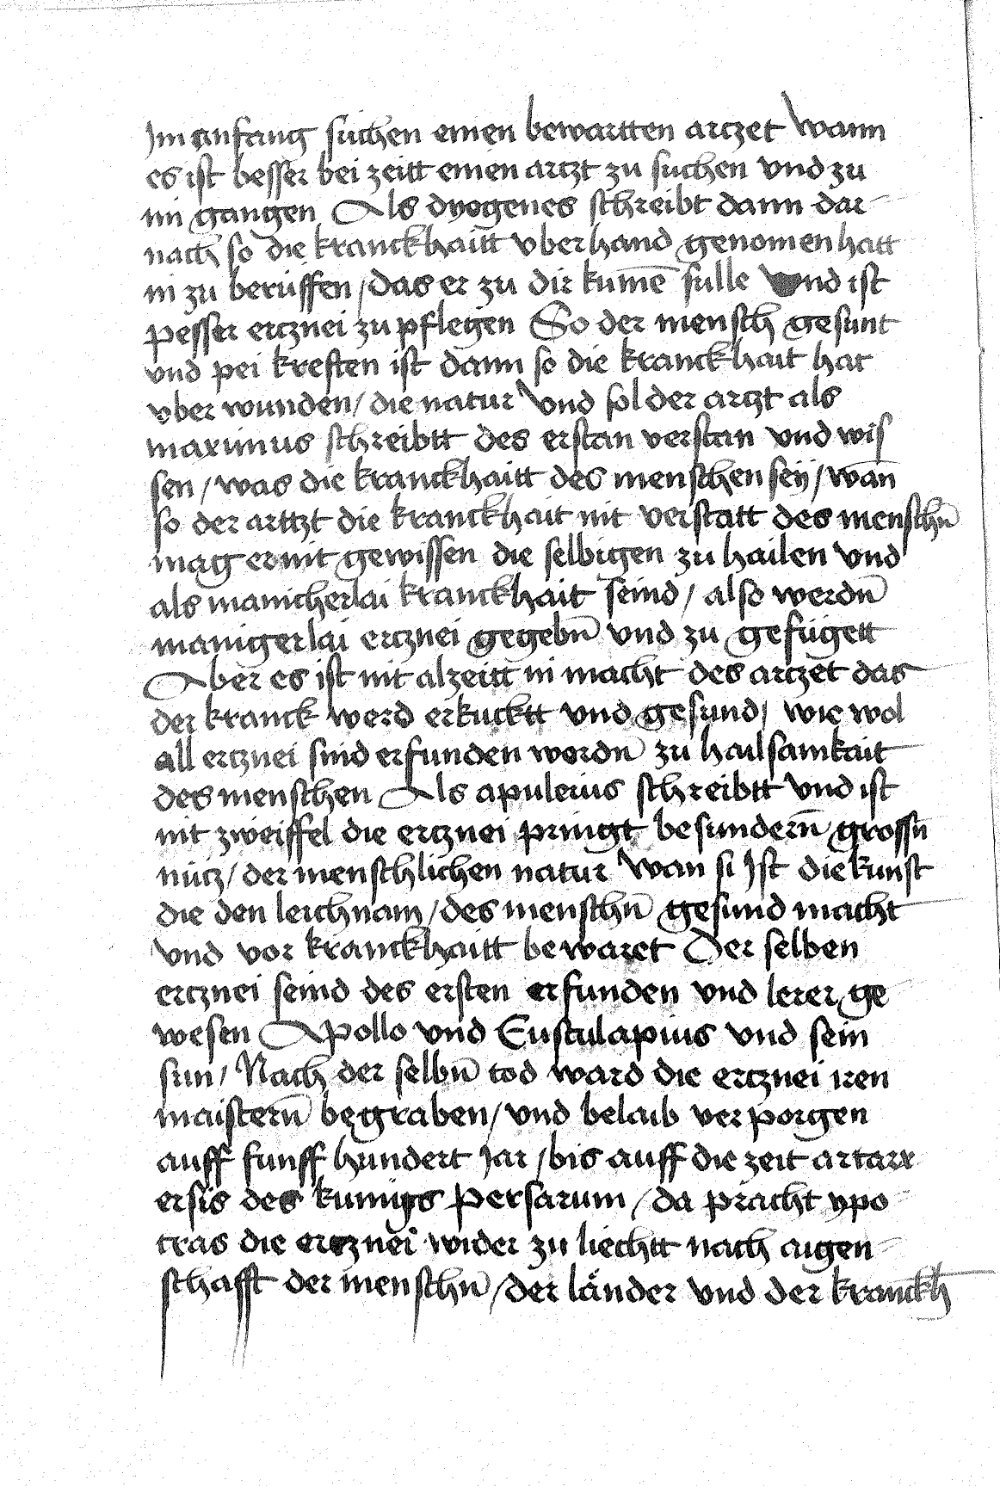 Im anfang suchen einen bewartten arczet Wann
es ist besser bei zeitt einen artzt zu suchen vnd zu
im gangen Als dyogenes schreibt dann dar-
nach so die kranckhaitt vberhand genomen hatt
in zu beruffen / das er zu dir kumē sulle Vnd ist
pesser ercznei zu pflegen So der mensch gesunt
vnd pei kreften ist dann so die kranckhait hat
vber wunden / die natur Vnd sol der artzt als
maximus schreibtt des erstan verstan vnd wis
sen / was die kranckhaitt des menschen seÿ / wān
so der arttzt die kranckhait nit verstatt des menschn̄
mag er nit gewissen die selbigen zu hailen vnd
als manicherlai kranckhait seind / also werdn̄
manigerlai ercznei gegebn̄ vnd zu gefügett
Aber es ist nit alzeitt in macht des arczet das
der kranck werd erkucktt vnd gesund / wie wol
all ercznei sind erfunden wordn̄ zu hailsamkait
des menschen Als apuleius schreibtt vnd ist
nit zweiffel die ercznei pringt besundern̄ grossn̄
nücz / der menschlichen natur Wan si Ist die kunst
die den leichnam / des menschn̄ gesund macht
vnd vor kranckhaitt bewaret Der selben
ercznei seind des ersten erfunden vnd lerer ge-
wesen Apollo vnd Eustulapius vnd sein
sun / Nach der selbn̄ tod ward die ercznei iren
maistern̄ begraben / vnd belaib verporgen
auff funff hundert Jar / bis auff die zeit artarx-
ersis des kunigs persarum / da pracht ypo-
cras die ercznei wider zu liechtt nach aigen-
schafft der menschn̄ / der länder vnd der kranckh